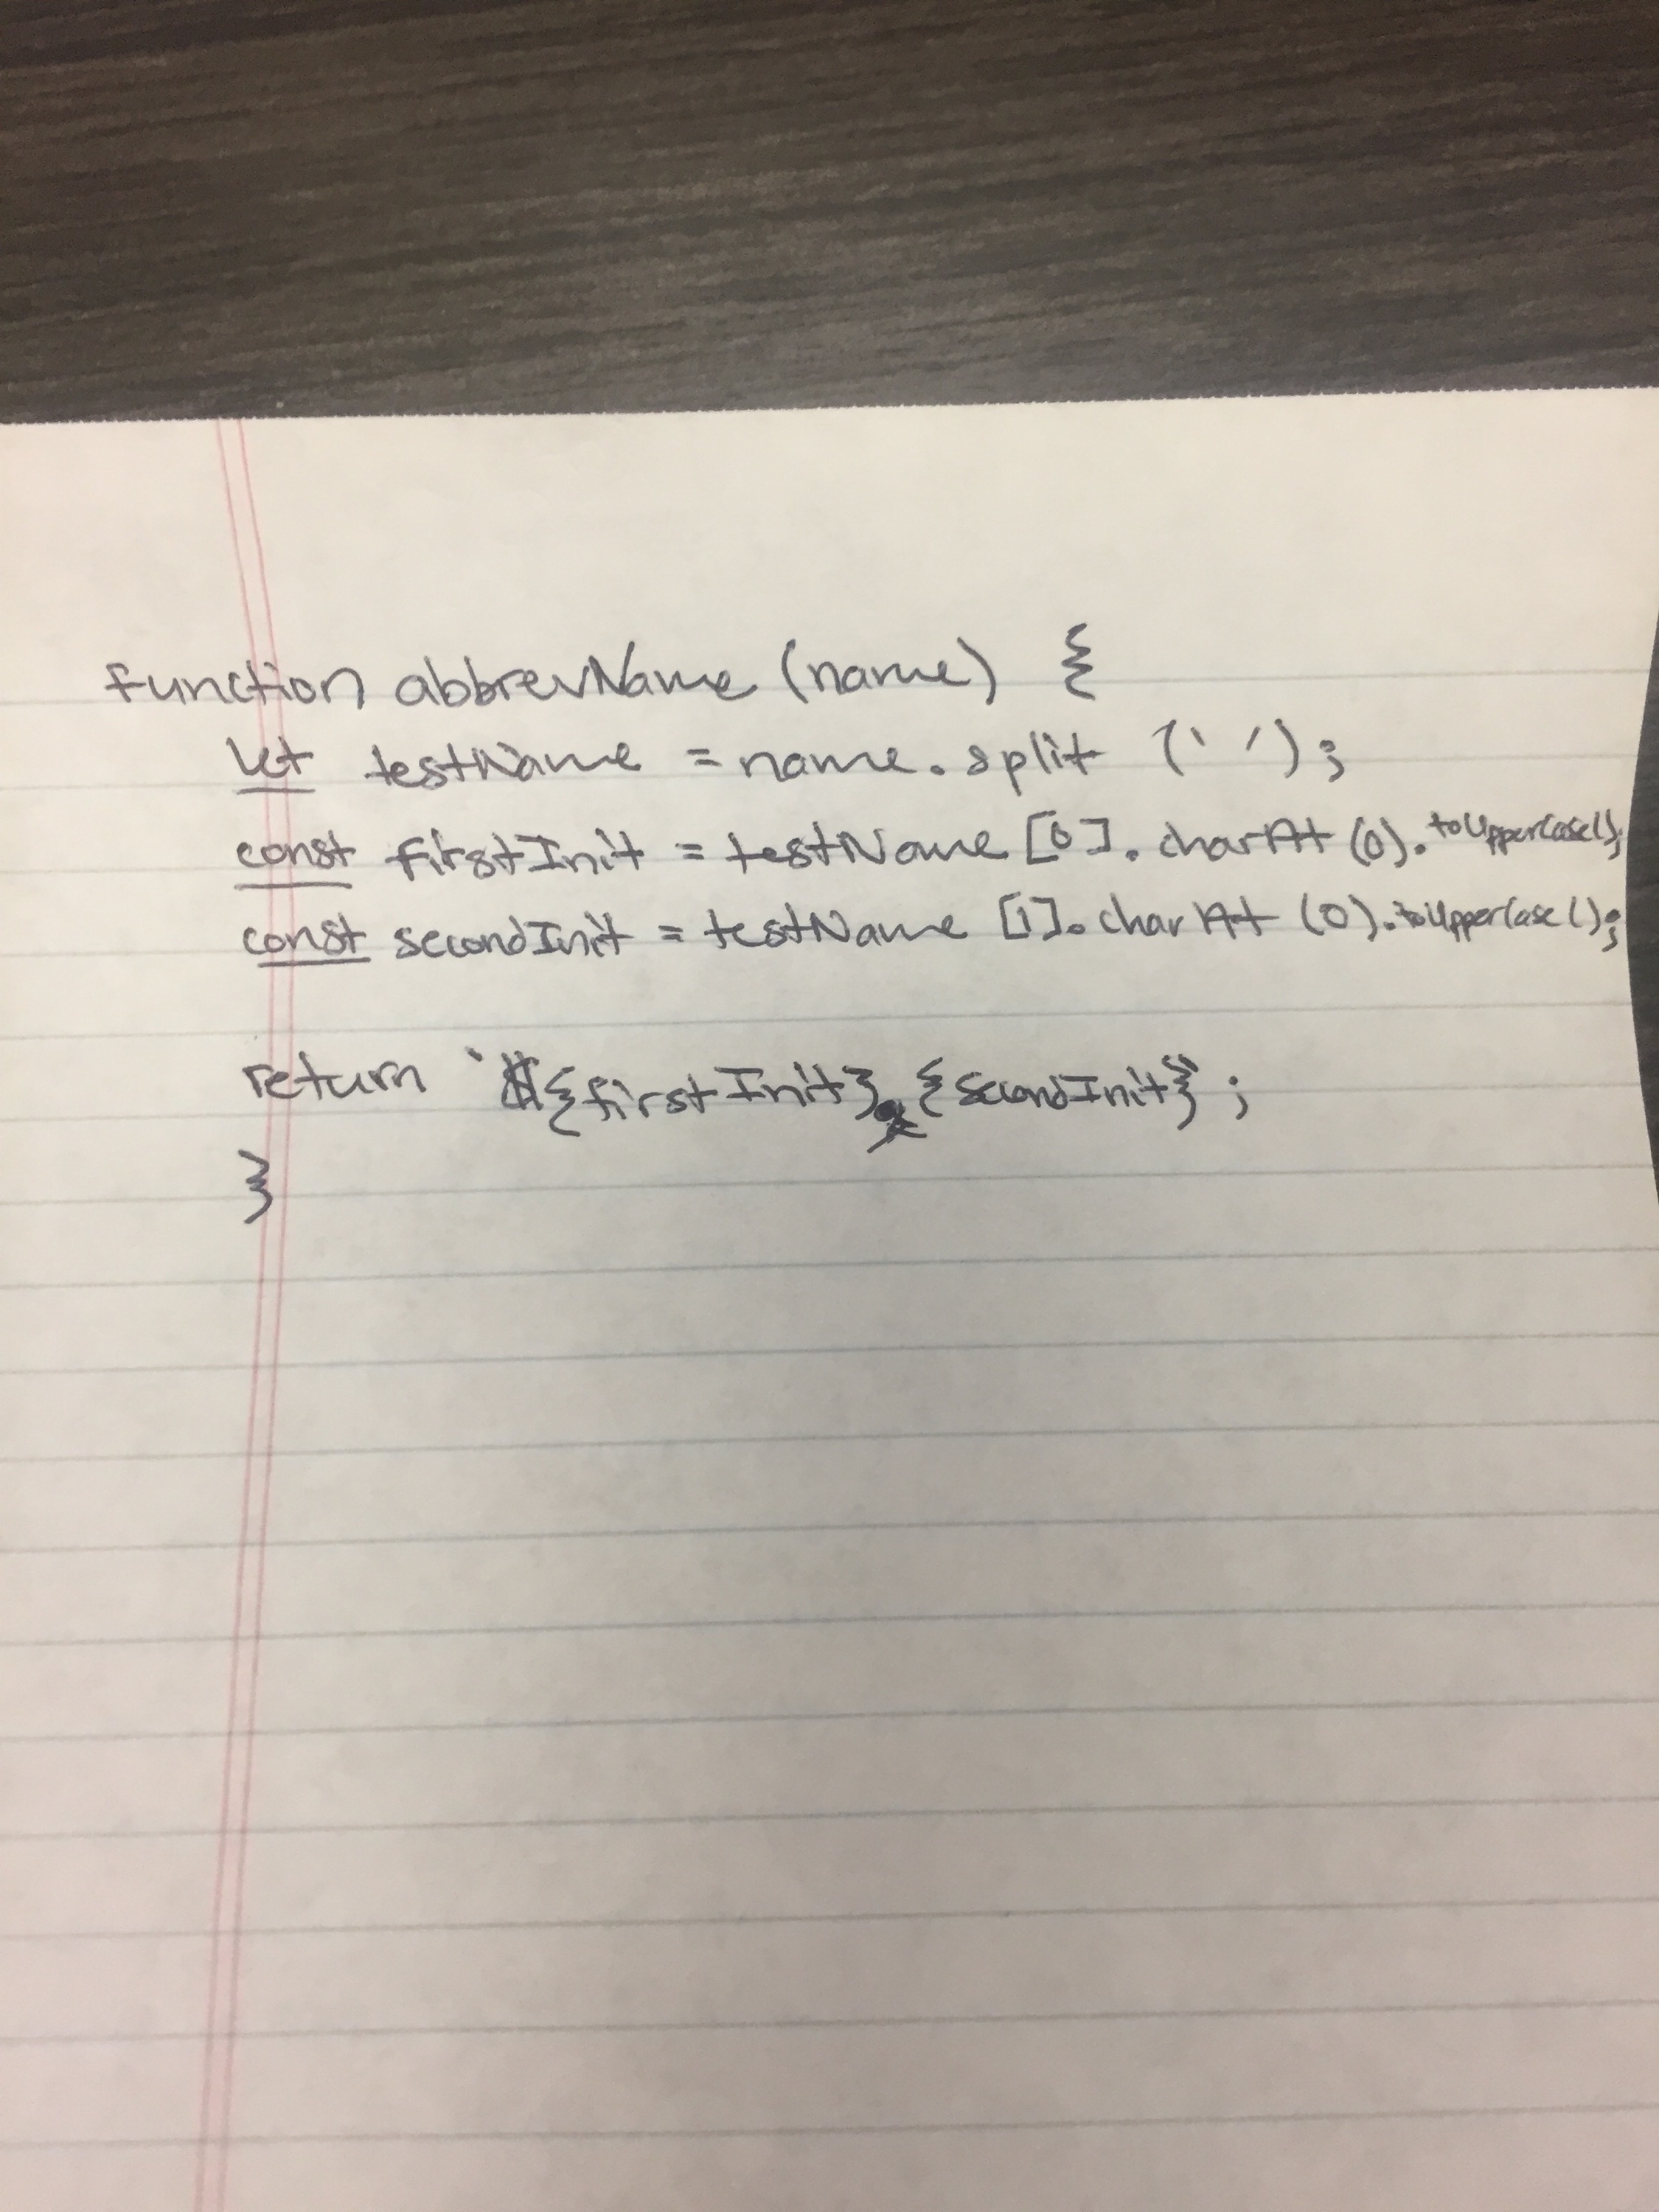 function abbrevName (name) {
let testName = name.split (' ');
const firstInit = testName [0]. charAt (0). toUpperCase();
const secondInit = testName [1]. charAt (0). toUpperCase();
return `${firstInit}.{secondInit}`;
}